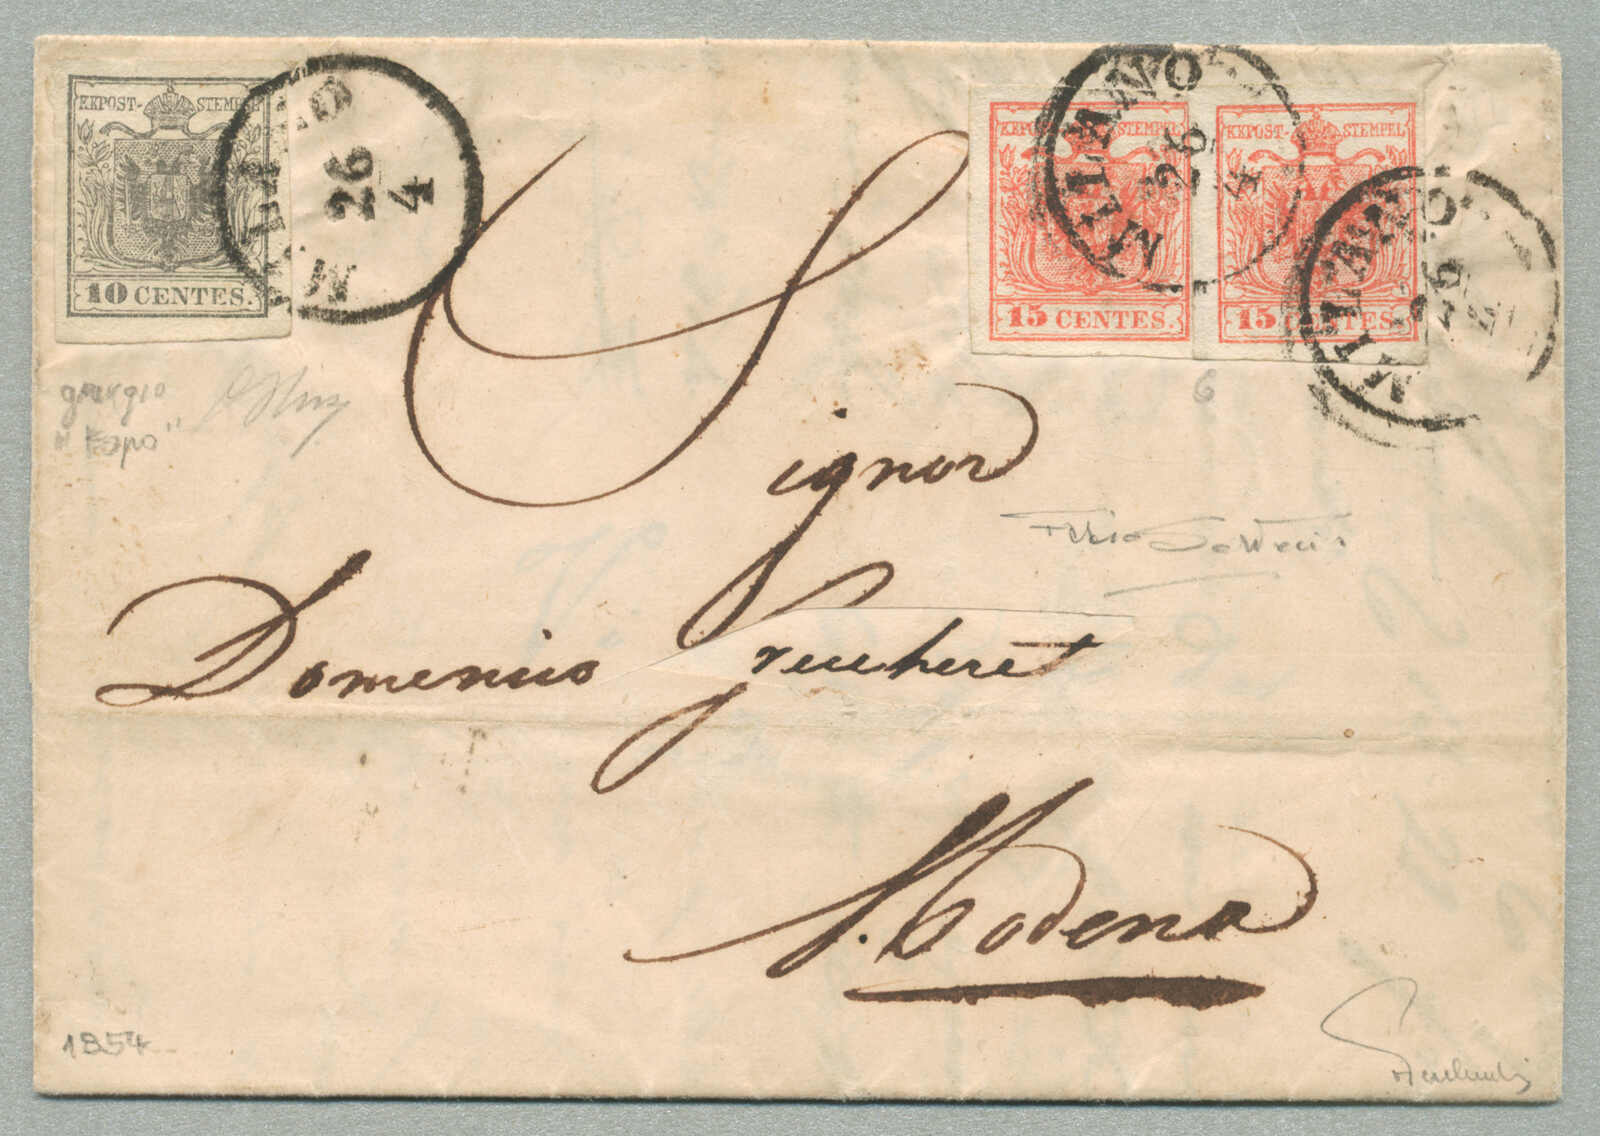 KKPOST-STEMPEL
10 CENTES.
MILANO
26
4
KKPOST-STEMPEL
15 CENTES.
KKPOST-STEMPEL
15 CENTES.
MILANO
26
4
MILANO
26
4
grigio
"Fapo"
6
Signor
Domenico
Modena
1854